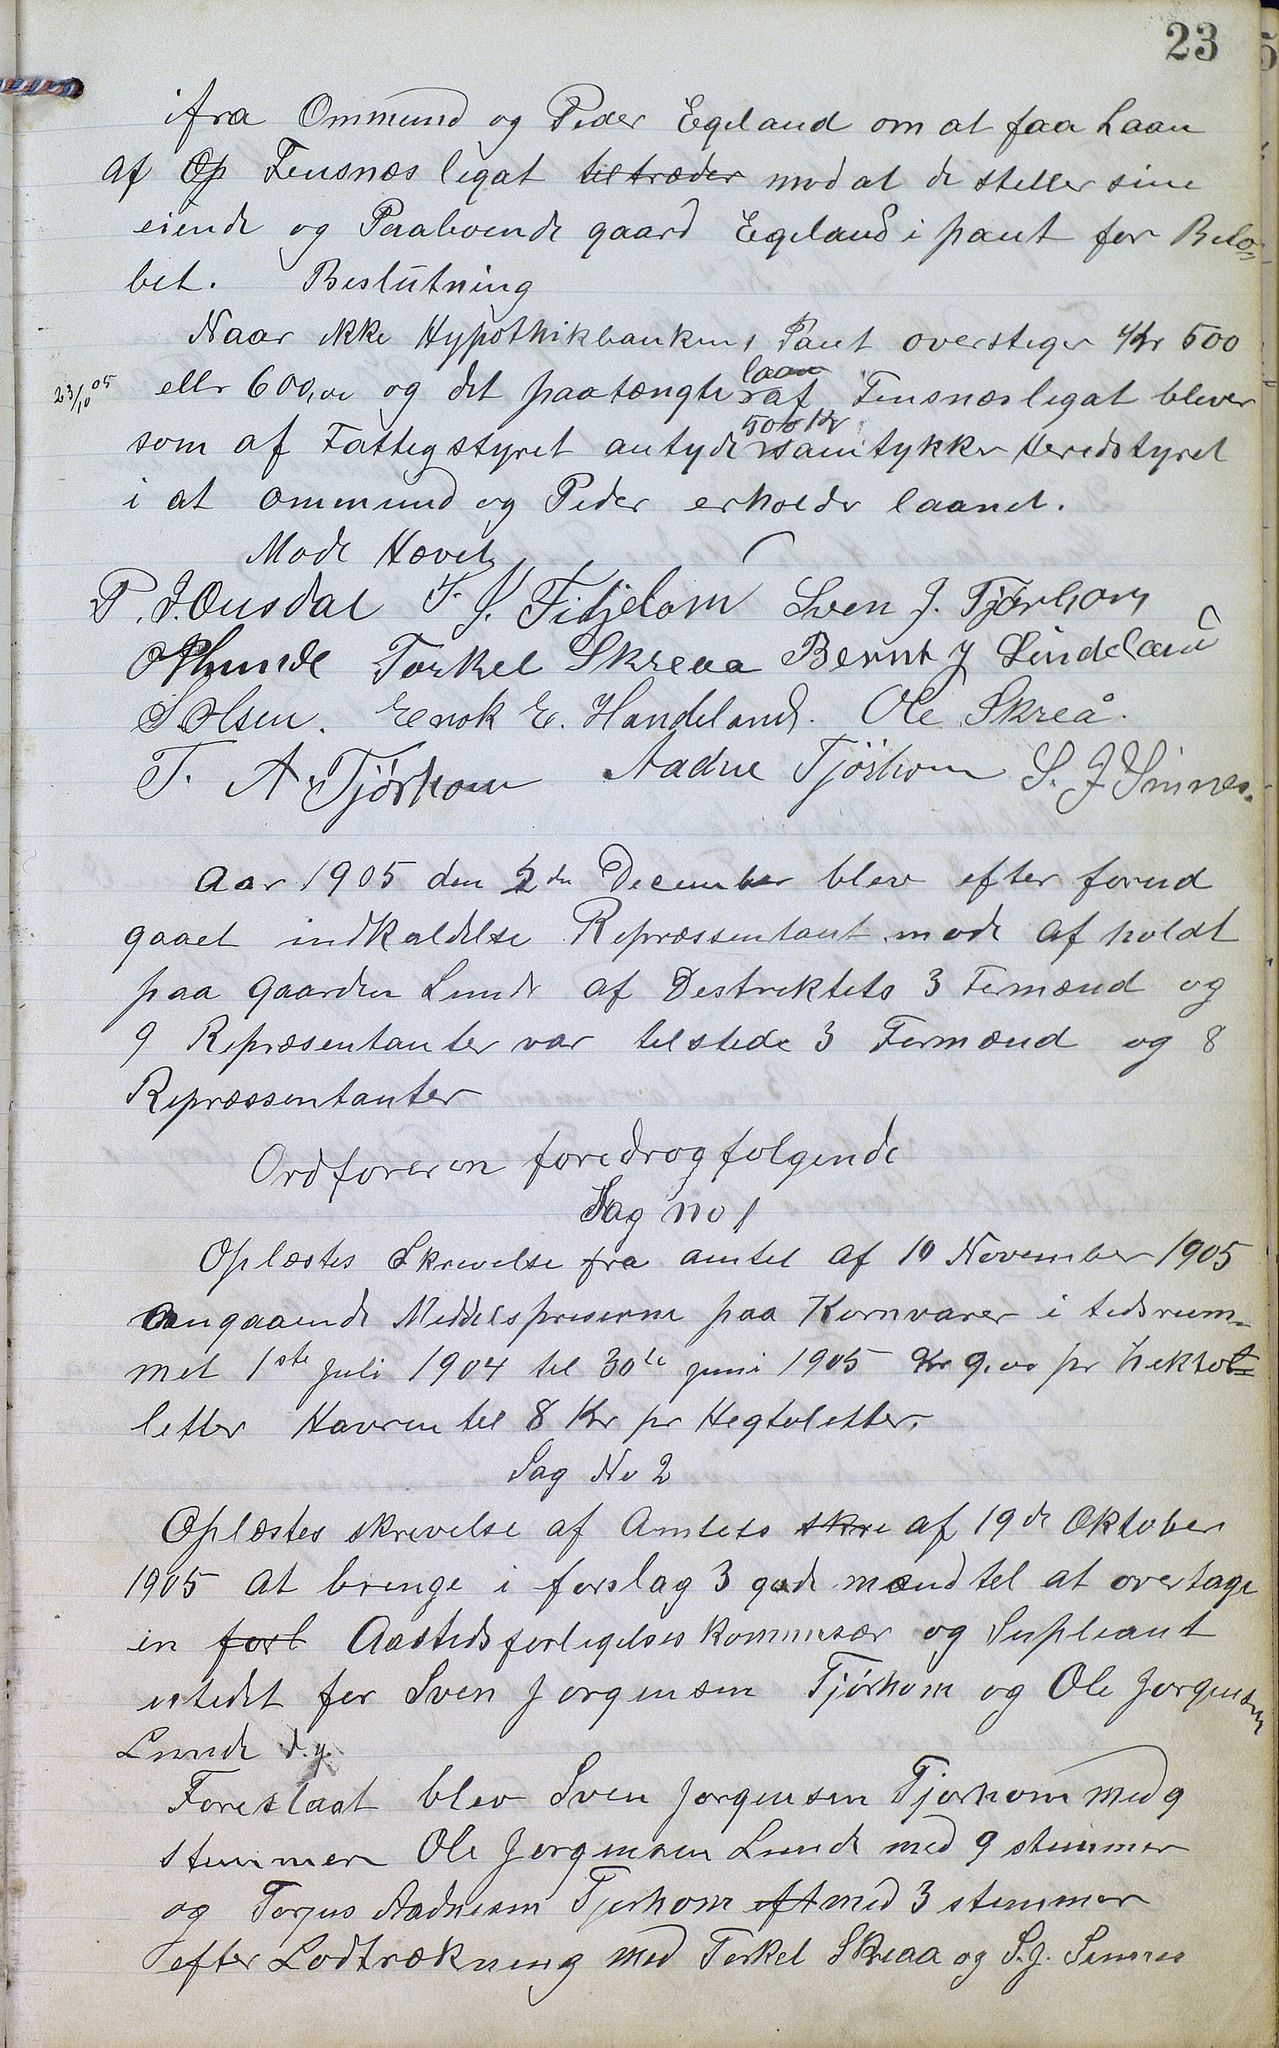 23
ifra Ommund og Peder Egeland om at faa Laan
af Op Fensnæs legat tiltræder mod at de steller sine
eiende og Paaboende gaard Egeland i pant for Belø-
bet. Beslutning
Naar ikke Hypothikbankens Pant oversteger Kr 500
23/10 05
laan
eller 600,00 og det paatængte af Fensnæslegat blever
500 Kr
som af Fattegstyret antyde samtykker Heredstyret
i at Ommund og Peder erholder laanet.
Møde Hævet
P. J. Ousdal T. J. Fitjelom Sven J. Tjørhom
OPLunde Torkel Skreaa Bernt J Lindeland
S Olsen. Enok E. Handeland. Ole Skreå.
T. A. Tjørhom Aadne Tjørhom S. J Sinnes.
Aar 1905 den 2den December blev efter forud
gaaet indkaldelse Repræssentant møde af holdt
paa gaarden Lunde af Destrektets 3 Formænd og
9 Repræsentanter var telstede 3 Formænd og 8
Repræssentanter
Ordføreren foredrog følgende
Sag no 1
Oplæstes Skrevelse fra amtet af 10 November 1905
Aangaaende Meddelspreserne paa Kornvarer i tedsrum-
met 1ste Juli 1904 til 30te juni 1905 Kr 9.00 pr hektol=
letter Havren tel 8 Kr pr Hegtoletter.
Sag No 2
Oplæstes skrevelse af Amtets skre af 19de Oktober
1905 At brenge i forslag 3 gode mænd tel at overtage
en forl Aastedsforlegelses kommesær og Supleant
estedet for Sven Jørgensen Tjørhom og Ole Jørgensen
Lunde d.y.
Foreslaat blev Sven Jørgensen Tjørhom med 9
stemmer Ole Jørgensen Lunde med 9 stemmer
og Torjus Aadnesen Tjørhom eft med 3 stemmer
efter Lodtrækneng med Torkel Skreaa og S. J. Sennes